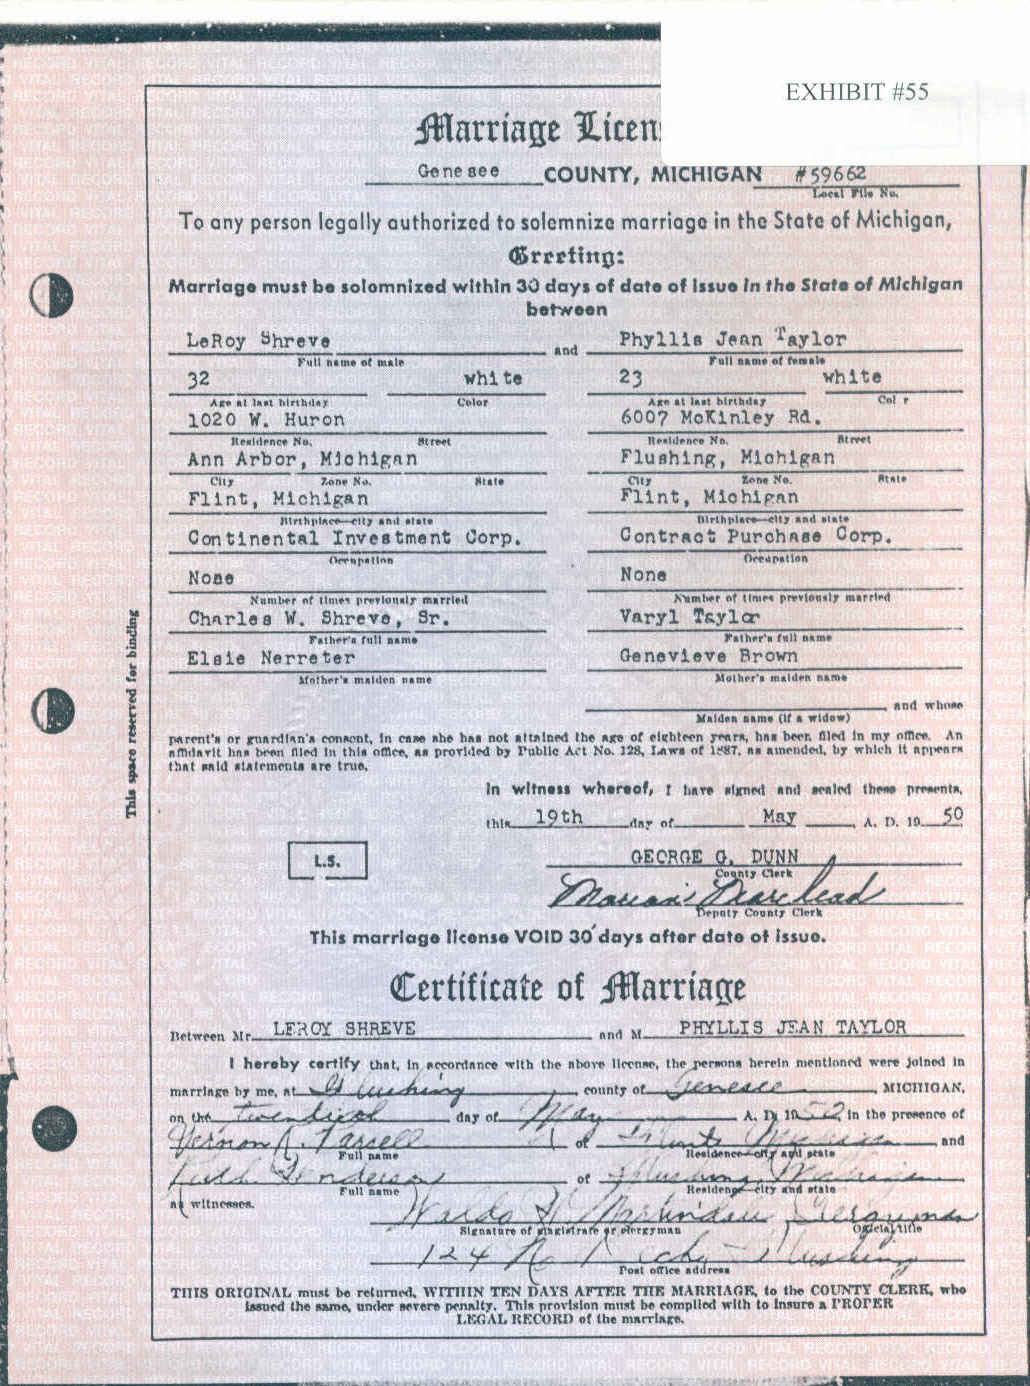 EXHIBIT #55
Marriage Licen
Genesee COUNTY, MICHIGAN #59662
Local File No.
To any person legally authorized to solemnize marriage in the State of Michigan,
Greeting:
Marriage must be solomnized within 30 days of date of issue in the State of Michigan
between
LeRoy Shreve and Phyllis Jean Taylor
Full name of male Full name of female
32 white 23 white
Age at last birthday Color Age at last birthday Col r
1020 W. Huron 6007 McKinley Rd.
Residence No. Street Residence No. Street
Ann Arbor, Michigan Flushing, Michigan
City Zone No. State City Zone No. State
Flint, Michigan Flint, Michigan
Birthplace—city and state Birthplace—city and state
Continental Investment Corp. Contract Purchase Corp.
Occupation Occupation
None None
Number of times previously married Number of times previously married
Charles W. Shreve, Sr. Varyl Taylor
Father's full name Father's full name
Elsie Nerreter Genevieve Brown
Mother's maiden name Mother's maiden name
and whose
Maiden name (if a widow)
parent's or guardian's consent, in case she has not attained the age of eighteen years, has been filed in my office. An
affidavit has been filed in this office, as provided by Public Act No. 128, Laws of 1887, as amended, by which it appears
that said statements are true.
In witness whereof, I have signed and sealed these presents,
this 19th day of May, A. D. 19 50
L.S.
GEORGE G. DUNN
County Clerk
Marian
Deputy County Clerk
This marriage license VOID 30 days after date of issue.
Certificate of Marriage
Between Mr. LEROY SHREVE and M PHYLLIS JEAN TAYLOR
I hereby certify that, in accordance with the above license, the persons herein mentioned were joined in
marriage by me, at Flushing, county of Genesee, MICHIGAN,
on the twentieth day of May A. D. 19 in the presence of
Vernon R. of Flint, Michigan and
Full name Residence—city and state
Ruth Henderson of Flushing, Michigan
Full name Residence—city and state
as witnesses.
Waldo Clergyman
Signature of magistrate or clergyman Official title
124 No Flushing
Post office address
THIS ORIGINAL must be returned, WITHIN TEN DAYS AFTER THE MARRIAGE, to the COUNTY CLERK, who
issued the same, under severe penalty. This provision must be complied with to insure a PROPER
LEGAL RECORD of the marriage.
This space reserved for binding